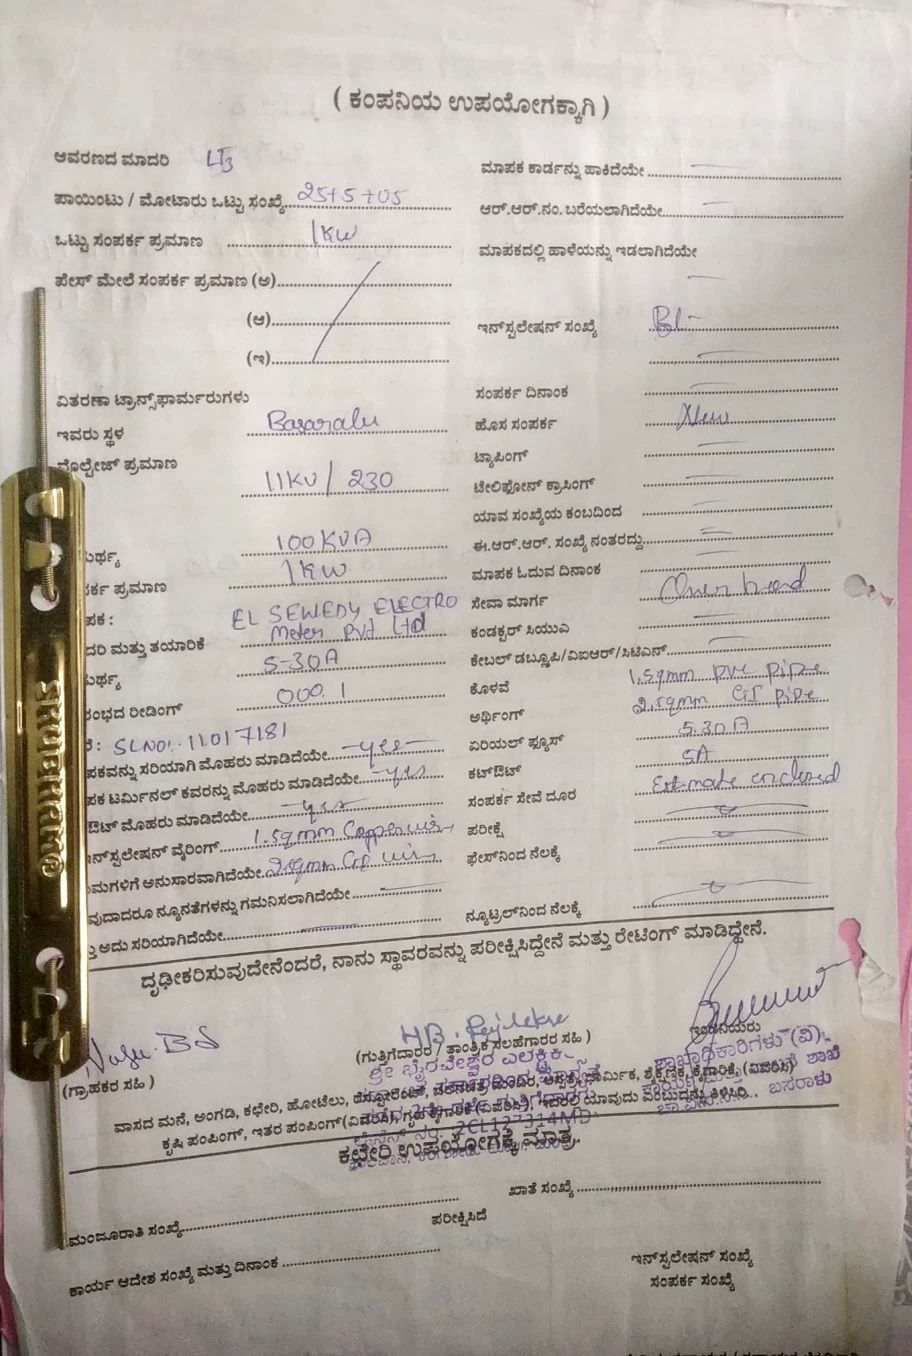 ( ಕಂಪನಿಯ ಉಪಯೋಗಕ್ಕಾಗಿ )
ಆವರಣದ ಮಾದರಿ LT3
ಪಾಯಿಂಟು / ಮೋಟಾರು ಒಟ್ಟು ಸಂಖ್ಯೆ 25+5+05
ಒಟ್ಟು ಸಂಪರ್ಕ ಪ್ರಮಾಣ 1KW
ಪೇಸ್ ಮೇಲೆ ಸಂಪರ್ಕ ಪ್ರಮಾಣ (ಅ)
(ಆ)
(ಇ)
ವಿತರಣಾ ಟ್ರಾನ್ಸ್‌ಫಾರ್ಮರುಗಳು
ಇವರು ಸ್ಥಳ Basaralu
ವೊಲ್ಟೇಜ್ ಪ್ರಮಾಣ 11KV / 230
ರ್ಥ್ಯ 100KVA
ರ್ಕ ಪ್ರಮಾಣ 1KW
ಪಕ : EL SEWEDY ELECTRO
ದರಿ ಮತ್ತು ತಯಾರಿಕೆ Meter Pvt Ltd
ರ್ಥ್ಯ 5-30A
ರಂಭದ ರೀಡಿಂಗ್ 000.1
: SLNO:. 11017181
ಪಕವನ್ನು ಸರಿಯಾಗಿ ಮೊಹರು ಮಾಡಿದೆಯೇ yes
ಪಕ ಟರ್ಮಿನಲ್ ಕವರನ್ನು ಮೊಹರು ಮಾಡಿದೆಯೇ yes
ಔಟ್ ಮೊಹರು ಮಾಡಿದೆಯೇ yes
ನ್‌ಸ್ಟಲೇಷನ್ ವೈರಿಂಗ್ 1.5qmm Copper wir
ಮಗಳಿಗೆ ಅನುಸಾರವಾಗಿದೆಯೇ
ವುದಾದರೂ ನ್ಯೂನತೆಗಳನ್ನು ಗಮನಿಸಲಾಗಿದೆಯೇ
ತ್ತು ಅದು ಸರಿಯಾಗಿದೆಯೇ
ಮಾಪಕ ಕಾರ್ಡನ್ನು ಹಾಕಿದೆಯೇ
ಆರ್.ಆರ್.ನಂ. ಬರೆಯಲಾಗಿದೆಯೇ
ಮಾಪಕದಲ್ಲಿ ಹಾಳೆಯನ್ನು ಇಡಲಾಗಿದೆಯೇ
ಇನ್‌ಸ್ಟಲೇಷನ್ ಸಂಖ್ಯೆ
ಸಂಪರ್ಕ ದಿನಾಂಕ
ಹೊಸ ಸಂಪರ್ಕ New
ಟ್ಯಾಪಿಂಗ್
ಟೇಲಿಫೋನ್ ಕ್ರಾಸಿಂಗ್
ಯಾವ ಸಂಖ್ಯೆಯ ಕಂಬದಿಂದ
ಈ.ಆರ್.ಆರ್. ಸಂಖ್ಯೆ ನಂತರದ್ದು
ಮಾಪಕ ಓದುವ ದಿನಾಂಕ
ಸೇವಾ ಮಾರ್ಗ Over head
ಕಂಡಕ್ಟರ್ ಸಿಯುಎ
ಕೇಬಲ್ ಡಬ್ಲೂಪಿ/ವಿಐಆರ್/ಸಿಟಿಎಸ್
ಕೊಳವೆ 1.5qmm pvc pipe
ಅರ್ಥಿಂಗ್ 2.5qmm GI pipe
ಏರಿಯಲ್ ಫ್ಯೂಸ್ 5.30A
ಕಟ್‌ಔಟ್ 5A
ಸಂಪರ್ಕ ಸೇವೆ ದೂರ Estimate enclosed
ಪರೀಕ್ಷೆ
ಫೇಸ್‌ನಿಂದ ನೆಲಕ್ಕೆ
ನ್ಯೂಟ್ರಲ್‌ನಿಂದ ನೆಲಕ್ಕೆ
ದೃಢೀಕರಿಸುವುದೇನೆಂದರೆ, ನಾನು ಸ್ಥಾವರವನ್ನು ಪರೀಕ್ಷಿಸಿದ್ದೇನೆ ಮತ್ತು ರೇಟಿಂಗ್ ಮಾಡಿದ್ದೇನೆ.
(ಗ್ರಾಹಕರ ಸಹಿ )
(ಗುತ್ತಿಗೆದಾರರ / ತಾಂತ್ರಿಕ ಸಲಹೆಗಾರರ ಸಹಿ )
ಶ್ರೀ ಭೈರವೇಶ್ವರ ಎಲೆಕ್ಟ್ರಿಕ್
ಶಾಖಾಧಿಕಾರಿಗಳು (ವಿ)
ಬಸರಾಳು
ವಾಸದ ಮನೆ, ಅಂಗಡಿ, ಕಛೇರಿ, ಹೋಟೆಲು,
ಕೃಷಿ ಪಂಪಿಂಗ್, ಇತರ ಪಂಪಿಂಗ್(ವಿವರಿಸಿ),
ಕಛೇರಿ ಉಪಯೋಗಕ್ಕೆ ಮಾತ್ರ.
ಮಂದೂರಾತಿ ಸಂಖ್ಯೆ
ಖಾತೆ ಸಂಖ್ಯೆ
ಪರೀಕ್ಷಿಸಿದೆ
ಕಾರ್ಯ ಆದೇಶ ಸಂಖ್ಯೆ ಮತ್ತು ದಿನಾಂಕ
ಇನ್‌ಸ್ಟಲೇಷನ್ ಸಂಖ್ಯೆ
ಸಂಪರ್ಕ ಸಂಖ್ಯೆ
SHUBHRAM®